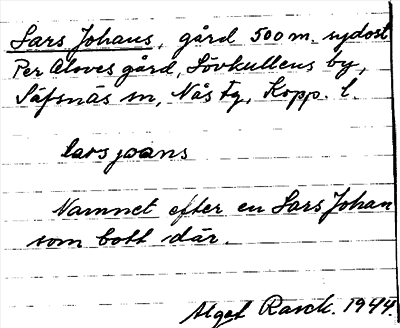 Lars Johans, gård 500 m. sydost
Per Aloves gård, Lövkullens by,
Säfsnäs sn, Nås tg, Kopp. l.
lars joans
Namnet efter en Lars Johan
som bott där.
Algot Rasck. 1944.